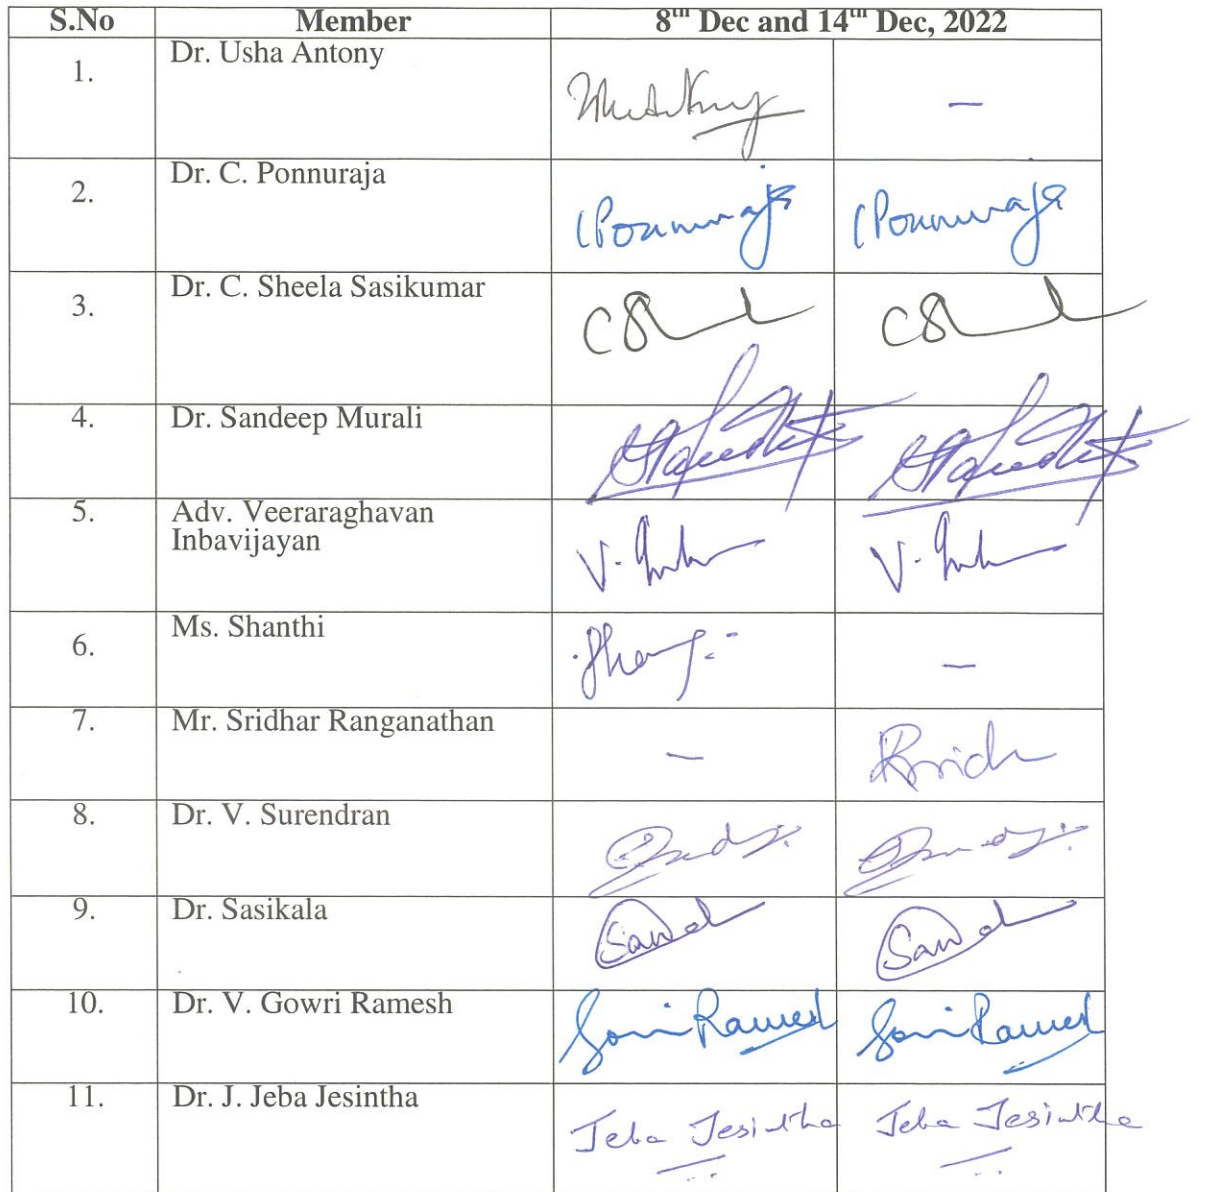 S.No Member 8th Dec and 14th Dec, 2022
1. Dr. Usha Antony –
2. Dr. C. Ponnuraja CPonnuraja CPonnuraja
3. Dr. C. Sheela Sasikumar
4. Dr. Sandeep Murali
5. Adv. Veeraraghavan
Inbavijayan
6. Ms. Shanthi –
7. Mr. Sridhar Ranganathan –
8. Dr. V. Surendran
9. Dr. Sasikala
10. Dr. V. Gowri Ramesh
11. Dr. J. Jeba Jesintha Jeba Jesintha Jeba Jesintha